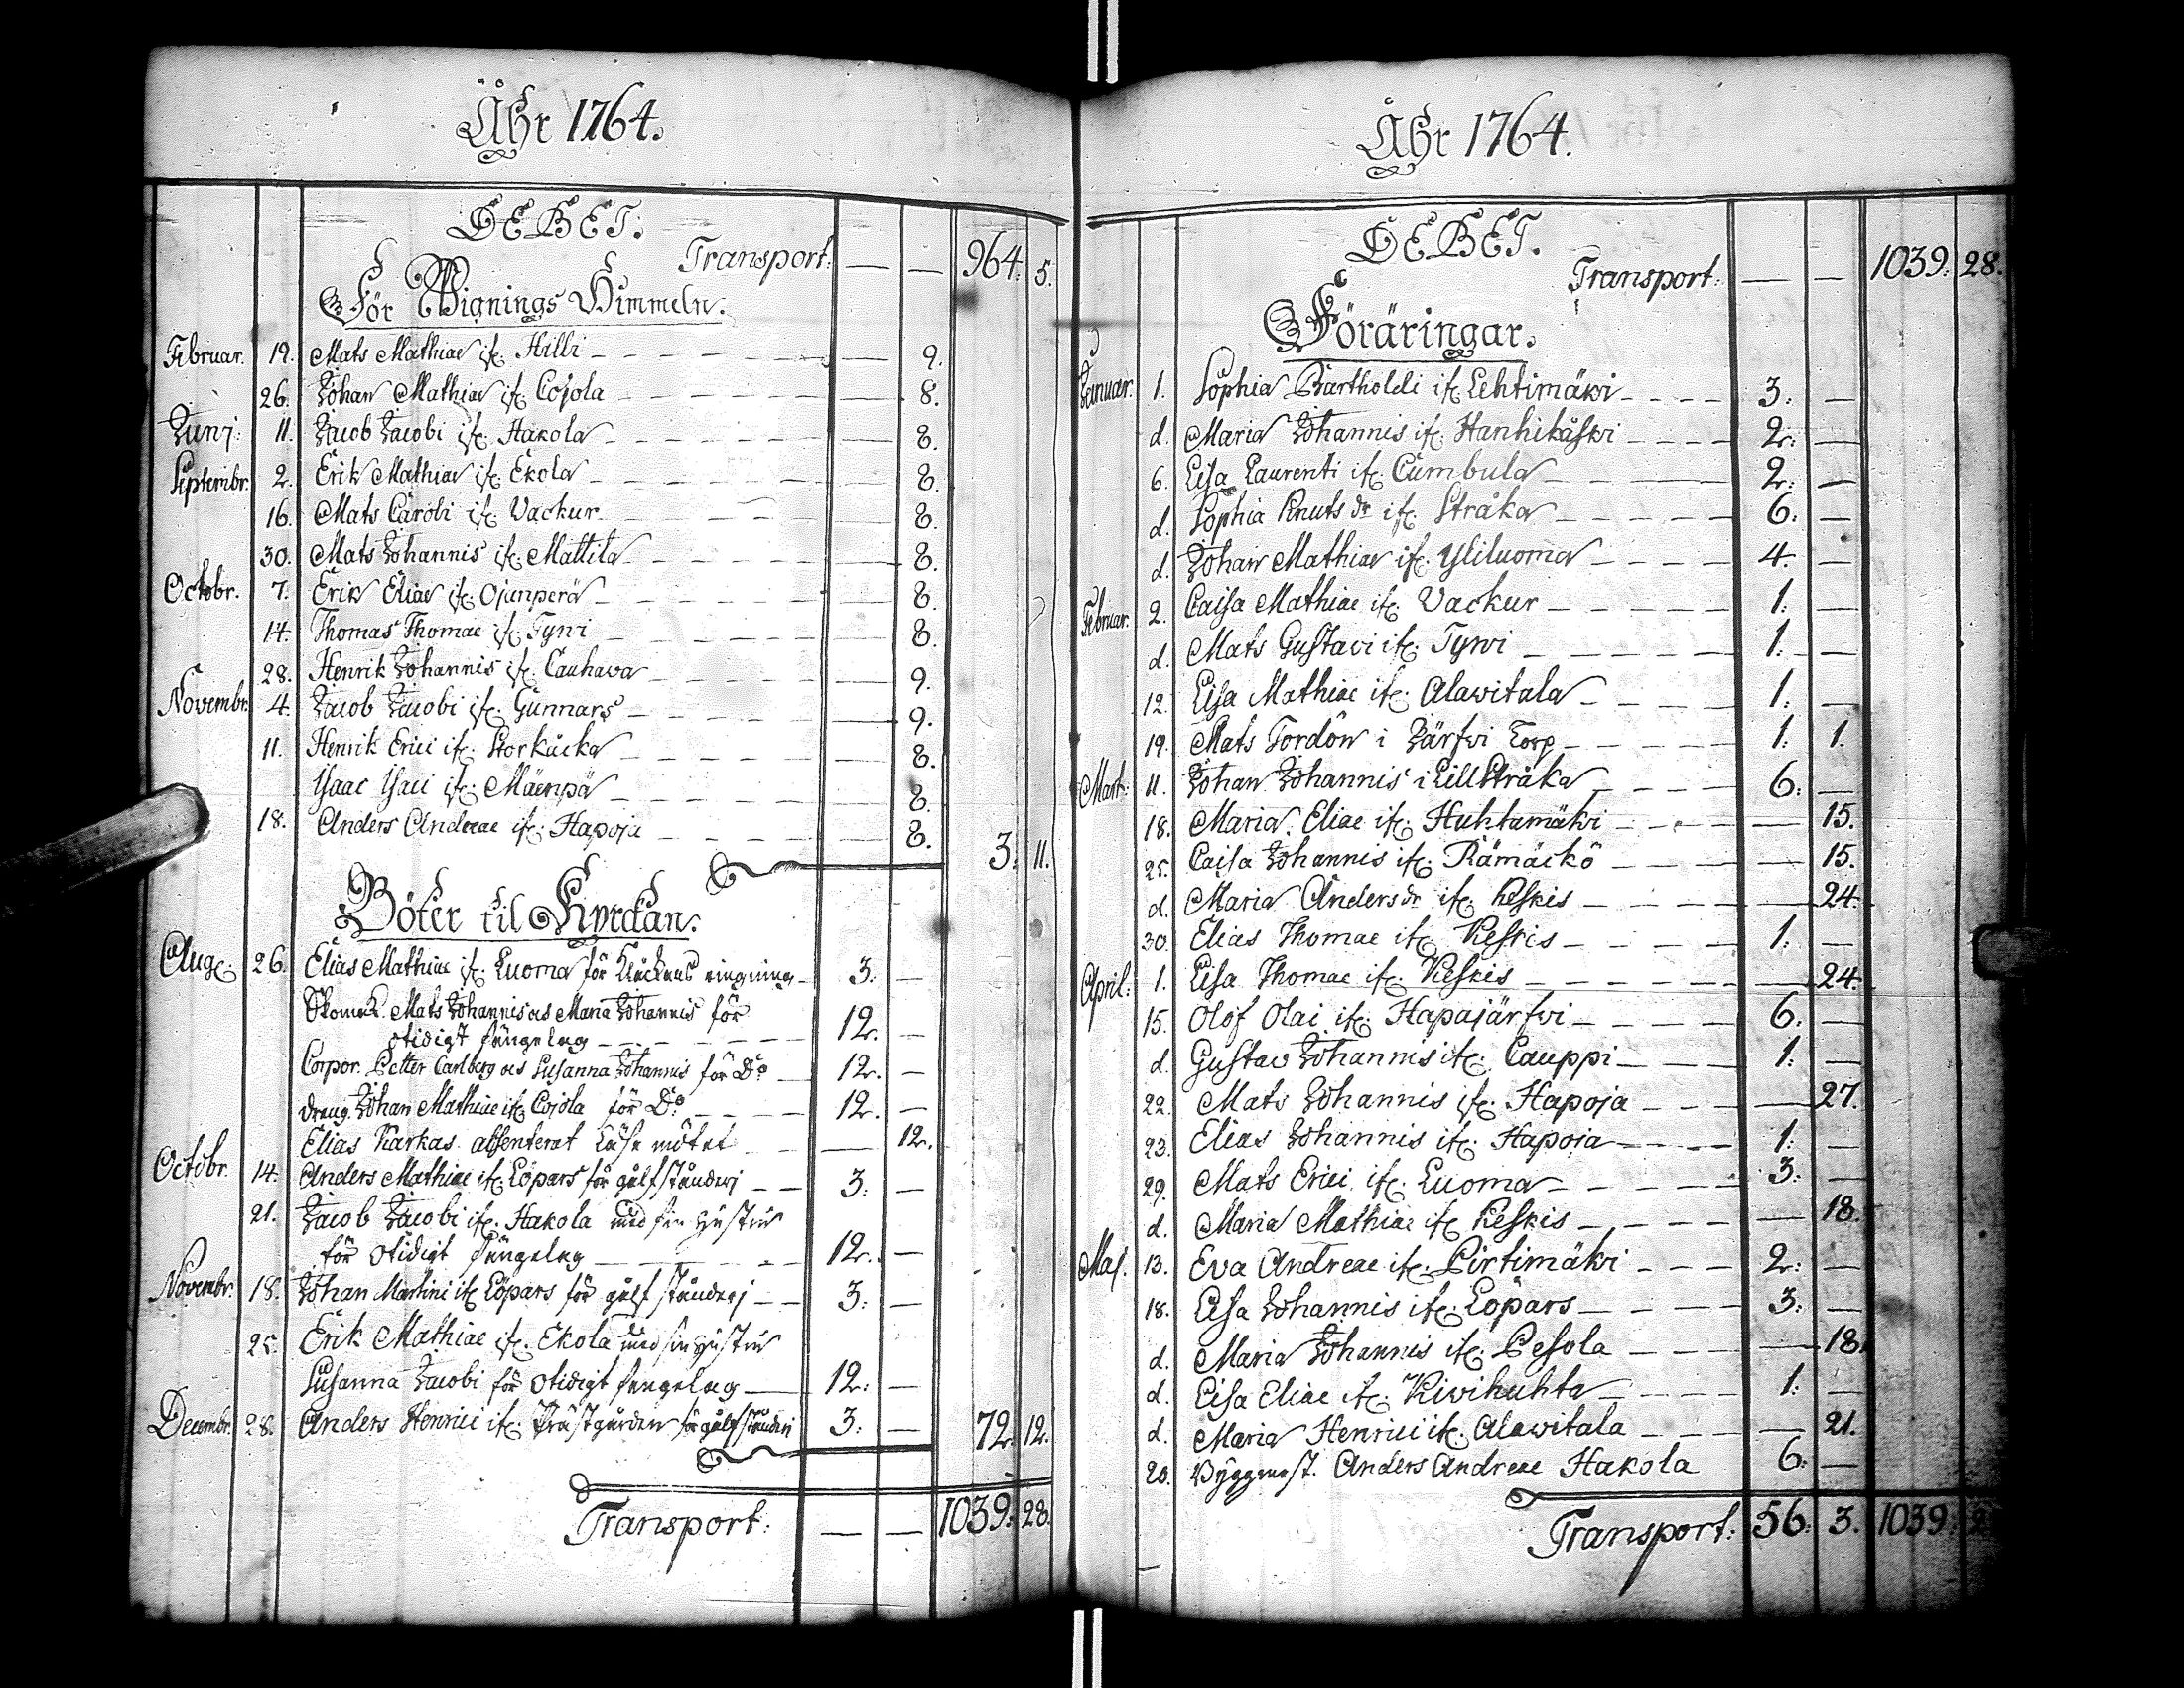 Åhr 1764.
DEBET.
Transport: — — 964: 5.
För Wignings Himmeln.
Februar. 19. Mats Mathiae ifr. Hilli — 9.
26. Johan Mathiae ifr. Cojola — 8.
Junj: 11. Jacob Jacobi ifr. Hakola — 8.
Septembr. 2. Erik Mathiae ifr. Ekola — 8.
16. Mats Caroli ifr. Vackur — 8.
30. Mats Johannis ifr. Mattila — 8.
Octobr. 7. Erik Eliae ifr. Ojanperä — 8.
14. Thomas Thomae ifr. Tyni — 8.
28. Henrik Johannis ifr. Cauhava — 9.
Novembr. 4. Jacob Jacobi ifr. Gunnars — 9.
11. Henrik Erici ifr. Storkåcka — 8.
Isaac Isaci ifr. Mäenpä — 8.
18. Anders Andreae ifr. Hapoja — 8. 3: 11.
Böter til Kyrckan.
Aug. 26. Elias Mathiae ifr. Luoma för Kläckans ringning 3: —
Skomak. Mats Johannis och Maria Johannis för
otidigt sängelag 12. —
Corpor. Petter Carlberg och Susanna Johannis för Do 12. —
dräng. Johan Mathiae ifr. Cojola för Do 12. —
Elias Karkas absenterat Läse mötet — 12.
Octobr. 14. Anders Mathiae ifr. Löpars för gålfstånderj 3: —
21. Jacob Jacobi ifr. Hakola med sin hustru
för otidigt sängelag 12. —
Novembr. 18. Johan Martini ifr. Löpars för gålfståndenj 3: —
25. Erik Mathiae ifr. Ekola med sin hustru
Susanna Jacobi för otidigt sängelag 12: —
Decembr. 28. Anders Henrici ifr. Prästgården för gålfstånderi 3: — 72: 12.
Transport: — — 1039: 28.
Åhr 1764.
DEBET.
Transport: — — 1039: 28.
Föräringar.
Januar. 1. Sophia Bartholdi ifr. Lehtimäki 3: —
d. Maria Johannis ifr. Hanhikåski 2: —
6. Lisa Laurenti ifr. Cumbula 2: —
d. Sophia Knuts dr. ifr. Stråka 6: —
d. Johan Mathiae ifr. Yliluoma 4. —
Februar. 2. Caisa Mathiae ifr. Vackur 1: —
d. Mats Gustavi ifr. Tyni 1: —
12. Lisa Mathiae ifr. Alawitala 1: —
19. Mats Tordôn i Järfvi Torp 1: 1.
Mart: 11. Johan Johannis i Lillstråka 6: —
18. Maria Eliae ifr. Huhtamäki — 15.
25. Caisa Johannis ifr. Rämäckö — 15.
d. Maria Anders dr. ifr. Keskis — 24.
30. Elias Thomae ifr. Keskis 1: —
April: 1. Lisa Thomae ifr. Keskis — 24.
15. Olof Olai ifr. Hapajärfvi 6. —
d. Gustav Johannis ifr. Cauppi 1: —
22. Mats Johannis ifr. Hapoja — 27.
23. Elias Johannis ifr. Hapoja 1: —
29. Mats Erici ifr. Luoma 3: —
d. Maria Mathiae ifr. Keskis — 18.
Maj. 13. Eva Andreae ifr. Pirtimäki 2: —
18. Lisa Johannis ifr. Löpars 3: —
d. Maria Johannis ifr. Pesola — 18.
d. Lisa Eliae ifr. Kivihuhta 1: —
d. Maria Henrici ifr. Alawitala — 21.
20. Byggmest. Anders Andreae Hakola 6: —
Transport: 56: 3. 1039: 2